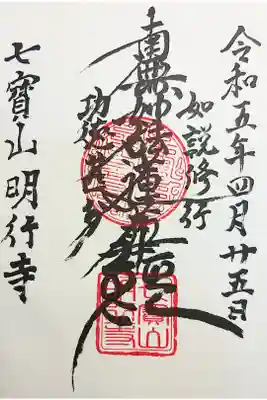 令和五年四月廿五日
如説修行
南無妙法蓮華経
功徳甚多
七寶山明行寺